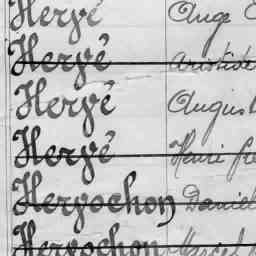 Hervé Ange
Hervé Aristide
Hervé August
Hervé Henri
Hervochon Daniel
Hervochon Marcel